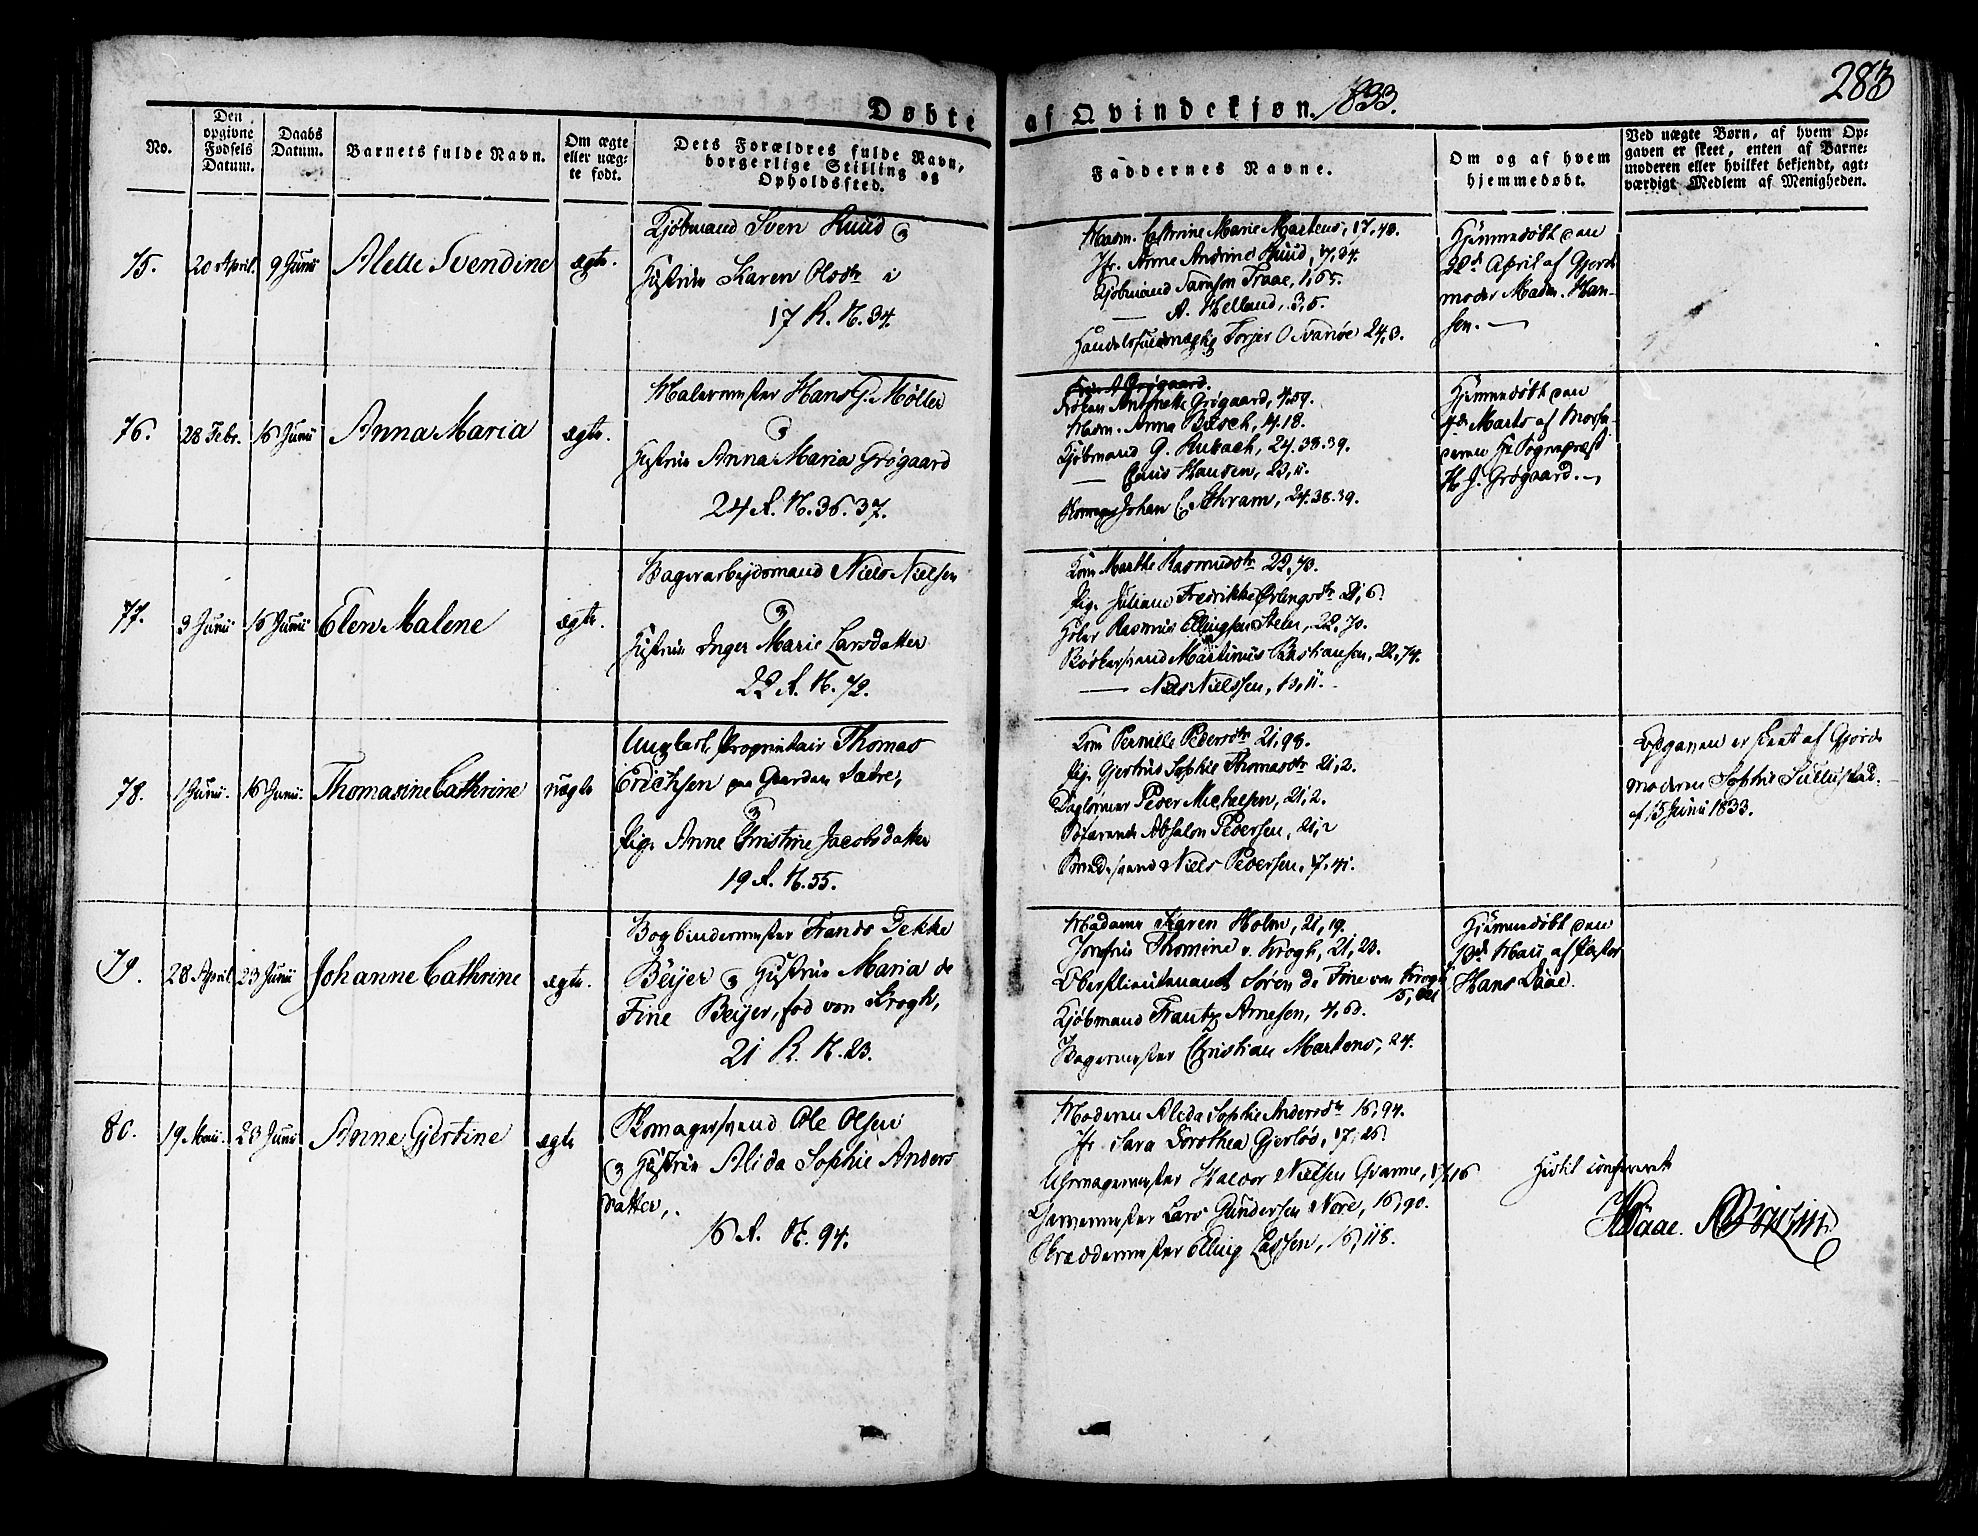 283
Døbte af Qvindekjøn. 1833.
No.
Den opgivne Fødsels Datum.
Daabs Datum.
Barnets fulde Navn.
Om ægte eller uæg-
te født.
Dets Forældres fulde Navn,
borgerlige Stilling og
Opholdssted.
Faddernes Navne.
Om og af hvem
hjemmedøbt.
Ved uægte Børn, af hvem Op-
gaven er skeet, enten af Barne-
moderen eller hvilket bekjendt, agt-
værdigt Medlem af Menigheden.
75.
20 April.
9 Junii
Alette Svendine
ægte.
Kjøbmand Sven Ruud &
Hustrue Karen Olsdtr i
17 R. N. 34.
Madm. Cathrine Marie Martens, 17, 40.
Jfr. Anne Andrine Ruud, 17, 34.
Kjøbmand Samson Traae, 1, 65.
— A. Helland, 3, 5.
Handelsfuldmægtig Torjer O Svanøe 24, 3.
Hjemmedøbt den
22d April af Gjord-
moder Madm. Han-
sen. —
76.
28 Febr.
16 Junii
Anna Maria
ægte.
Malermester Hans G. Møller
&
Hustrue Anna Maria Grøgaard
24 R. N. 36. 37.
Frøken Antonette Grøgaard, 4, 59.
Madm. Anna Büsch, 14. 18.
Kjøbmand G. Rubach, 24. 38. 39.
— Claus Hansen, 23, 11.
Johan C. Schram, 24. 38. 39.
Hjemmedøbt den
Marts af Morfa-
deren Hr Sognepræst
H. J. Grøgaard. —
77.
3 Junii
16 Junii
Elen Malene
ægte.
Bagerarbeidsmand Niels Nielsen
&
Hustrue Inger Marie Larsdatter
22 R. N. 72.
Kone Marthe Rasmusdtr 22, 73.
Pig. Juliane Fredrikke Erlingsdtr 21, 6.
Rasmus Ellingsen Steen, 22, 70.
Bødkersvend Martinus Bastiansen, 22, 74.
— Niels Nielssen, 13, 11.
78.
1 Junii.
16 Junii.
Thomasine Cathrine
uægte
Ungkarl, Proprietair Thomas
Erichsen paa Gaarden Sædre,
&
Pig. Anne Christine Jacobsdatter
19 R. N. 55.
Kone Pernille Pedersdtr 21, 98.
Pig. Gjertrud Sophie Thomasdtr 21, 2.
Dagleiner Peder Michelsen, 21, 2.
Søfarende Absalon Pedersen, 21, 2
Niels Pedersen, 17, 41.
Opgaven er skeet af Gjord-
moderen Sophie Sullustad.
af 15 Junii 1833.
79.
28 April
23 Junii
Johanne Cathrine
ægte.
Bogbindermester Frands Dekke
Beijer & Hustrue Maria de
Fine Beijer, fød von Krogh,
21 R. N. 23.
Madame Karen Holm, 21, 19.
Jomfrue Thomine v. Krogh, 21, 23.
Oberstlieutenant Søren de Fine von Krogh
Kjøbmand Frantz Arnesen, 4, 63.
Bagermester Christian Martens, 24.
Hjemmedøbt den
Maii, af Pastor
Hans Daae.
80.
19 Maii.
23 Junii
Anne Gjertine
ægte
Skomagersvend Ole Olsen
& Hustrue Alida Sophie Anders
datter,
16 R. N. 94.
Moderen Alida Sophie Andersdtr 16, 94.
Jfr. Sara Dorothea Gjerløs, 17, 26.
Uhrmagermester Halvor Nielsen Gvarme, 17, 16
Garvermester Lars Gundersen Nord, 16, 90.
Skræddermester Elling Lassen, 16, 118.
Hidtil confereret
HDaae.